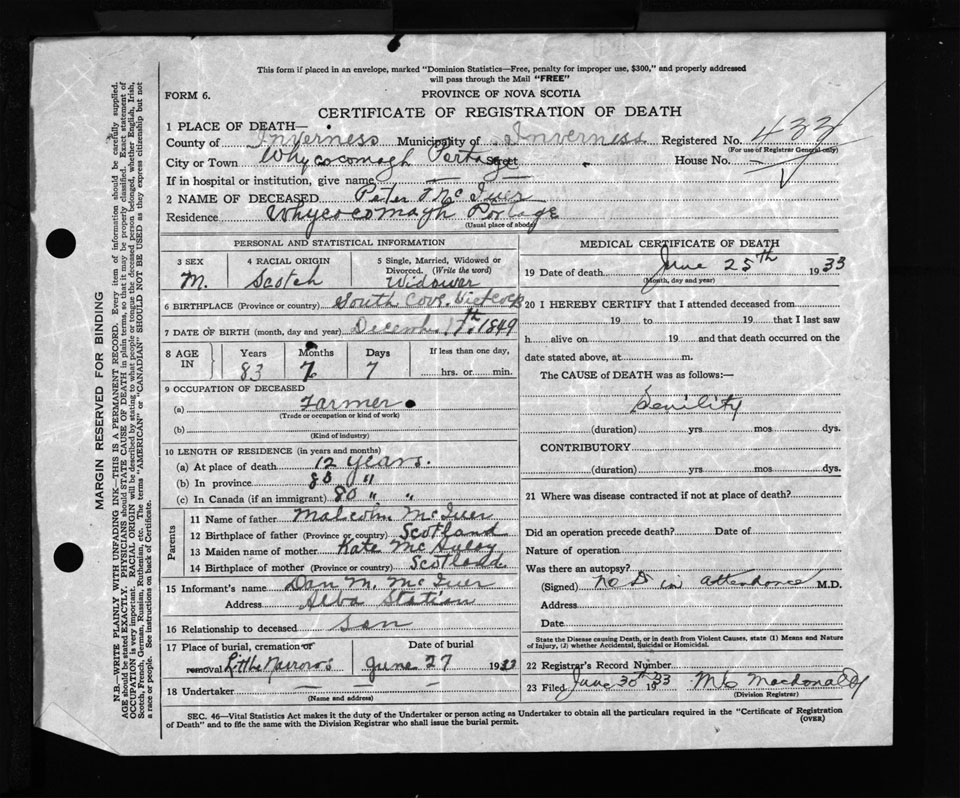 This form if placed in an envelope, marked "Dominion Statistics—Free, penalty for improper use, $300," and properly addressed
will pass through the Mail "FREE"
FORM 6.
PROVINCE OF NOVA SCOTIA
CERTIFICATE OF REGISTRATION OF DEATH
1 PLACE OF DEATH—
County of Inverness Municipality of Inverness Registered No. 433
(For use of Registrar General only)
City or Town Whycocomagh Portage Street House No. —
If in hospital or institution, give name — —
2 NAME OF DECEASED Peter McIver
Residence Whycocomagh Portage
(Usual place of abode)
PERSONAL AND STATISTICAL INFORMATION
3 SEX M.
4 RACIAL ORIGIN Scotch
5 Single, Married, Widowed or Divorced. (Write the word) Widower
6 BIRTHPLACE (Province or country) South Cove
7 DATE OF BIRTH (month, day and year) December 17th 1849
8 AGE IN Years 83 Months 7 Days 7 If less than one day, hrs. or min.
9 OCCUPATION OF DECEASED
(a) Farmer
(Trade or occupation or kind of work)
(b)
(Kind of industry)
10 LENGTH OF RESIDENCE (in years and months)
(a) At place of death 12 years.
(b) In province 80 "
(c) In Canada (if an immigrant) 80 " "
Parents
11 Name of father Malcolm McIver
12 Birthplace of father (Province or country) Scotland
13 Maiden name of mother Kate McAulay
14 Birthplace of mother (Province or country) Scotland
15 Informant's name Dan M. McIver
Address Alba Station
16 Relationship to deceased son
17 Place of burial, cremation or removal Little Narrows Date of burial June 27 1933
18 Undertaker — — —
(Name and address)
MEDICAL CERTIFICATE OF DEATH
19 Date of death June 25th 1933
(Month, day and year)
20 I HEREBY CERTIFY that I attended deceased from
19 to 19 that I last saw
h alive on 19 and that death occurred on the
date stated above, at m.
The CAUSE of DEATH was as follows:—
Senility
(duration) yrs mos dys.
CONTRIBUTORY
(duration) yrs mos dys.
21 Where was disease contracted if not at place of death?
Did an operation precede death? Date of
Nature of operation
Was there an autopsy?
(Signed) No Dr in attendance M.D.
Address
Date
State the Disease causing Death, or in death from Violent Causes, state (1) Means and Nature
of Injury, (2) whether Accidental, Suicidal or Homicidal.
22 Registrar's Record Number
23 Filed June 30th 1933 Macdonald
(Division Registrar)
SEC. 46—Vital Statistics Act makes it the duty of the Undertaker or person acting as Undertaker to obtain all the particulars required in the "Certificate of Registration
of Death" and to file the same with the Division Registrar who shall issue the burial permit.
(OVER)
MARGIN RESERVED FOR BINDING
N.B.—WRITE PLAINLY WITH UNFADING INK—THIS IS A PERMANENT RECORD. Every item of information should be carefully supplied.
AGE should be stated EXACTLY. PHYSICIANS should STATE CAUSE OF DEATH in plain terms, so that it may be properly classified. Exact statement of
OCCUPATION is very important. RACIAL ORIGIN will be described by stating to what people or tongue the deceased person belonged, whether English, Irish,
Scotch, French, German, Russian, Ruthenian, etc. The terms "AMERICAN" or "CANADIAN" SHOULD NOT BE USED as they express citizenship but not
a race or people. See instructions on back of Certificate.